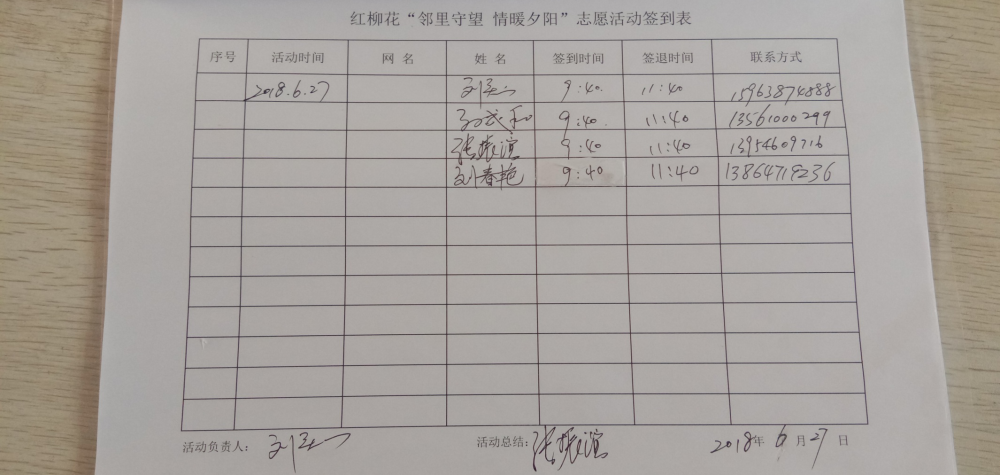 红柳花“邻里守望 情暖夕阳”志愿活动签到表
序号 活动时间 网名 姓名 签到时间 签退时间 联系方式
2018.6.27 刘 9:40. 11:40 15963874888
9:40. 11:40 13561000299
张振谊 9:40 11:40 13954609716
刘春艳 9:40 11:40 13864719236
活动负责人: 刘 活动总结: 张振谊 2018年6月27日